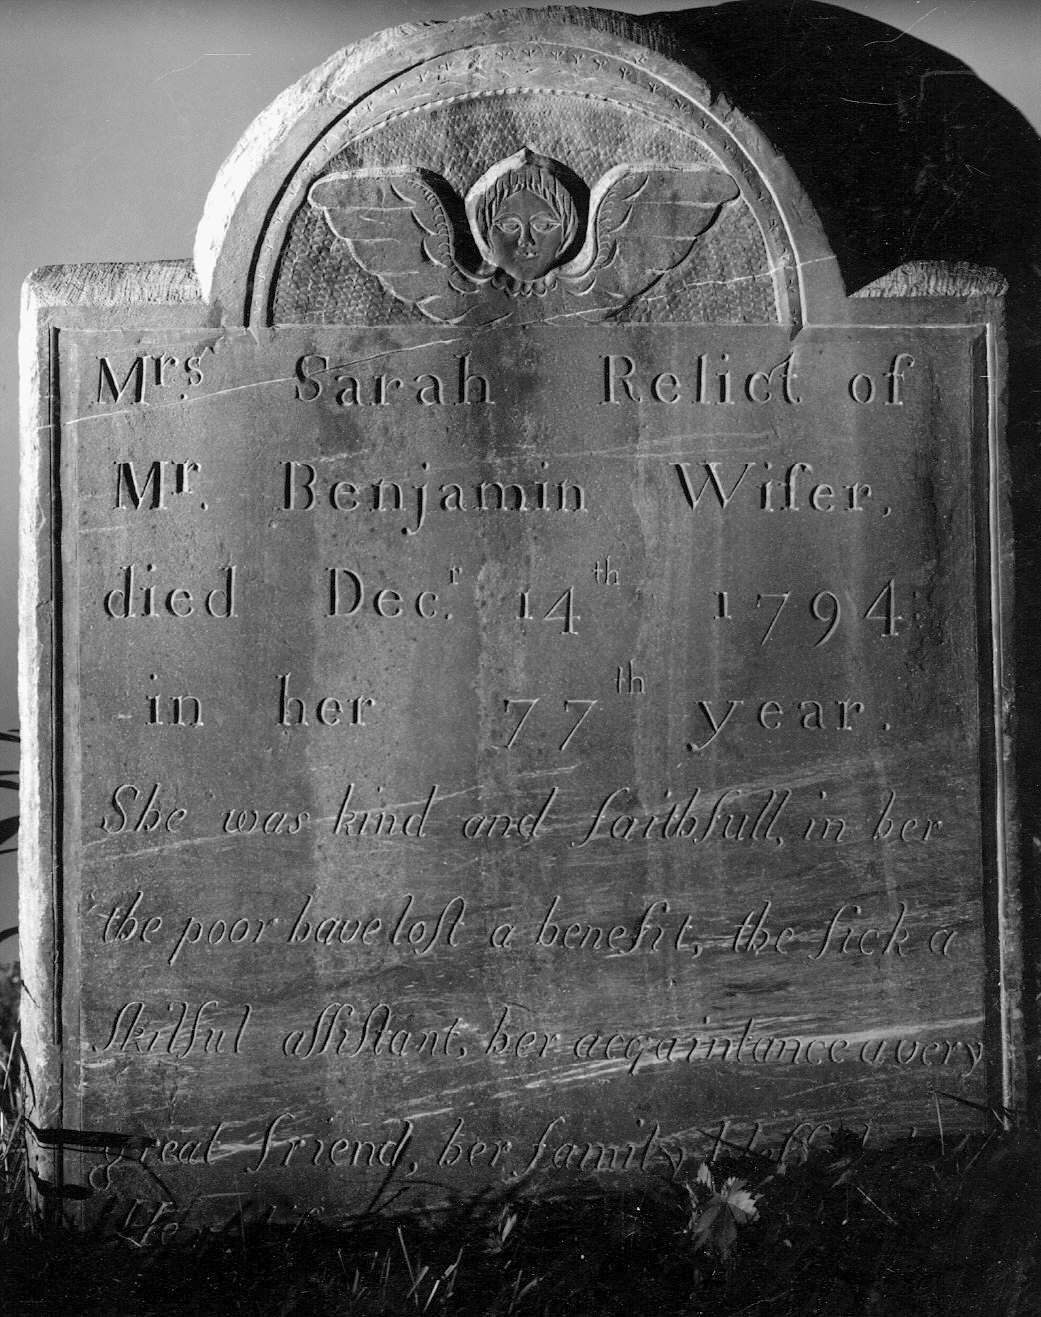 Mrs. Sarah Relict of
Mr. Benjamin Wiſer,
died Decr. 14th 1794
in her 77th year.
She was kind and faithfull, in her
the poor have loſt a benefit, the ſick a
ſkilful aſſiſtant, her acqaintance a very
great friend, her family